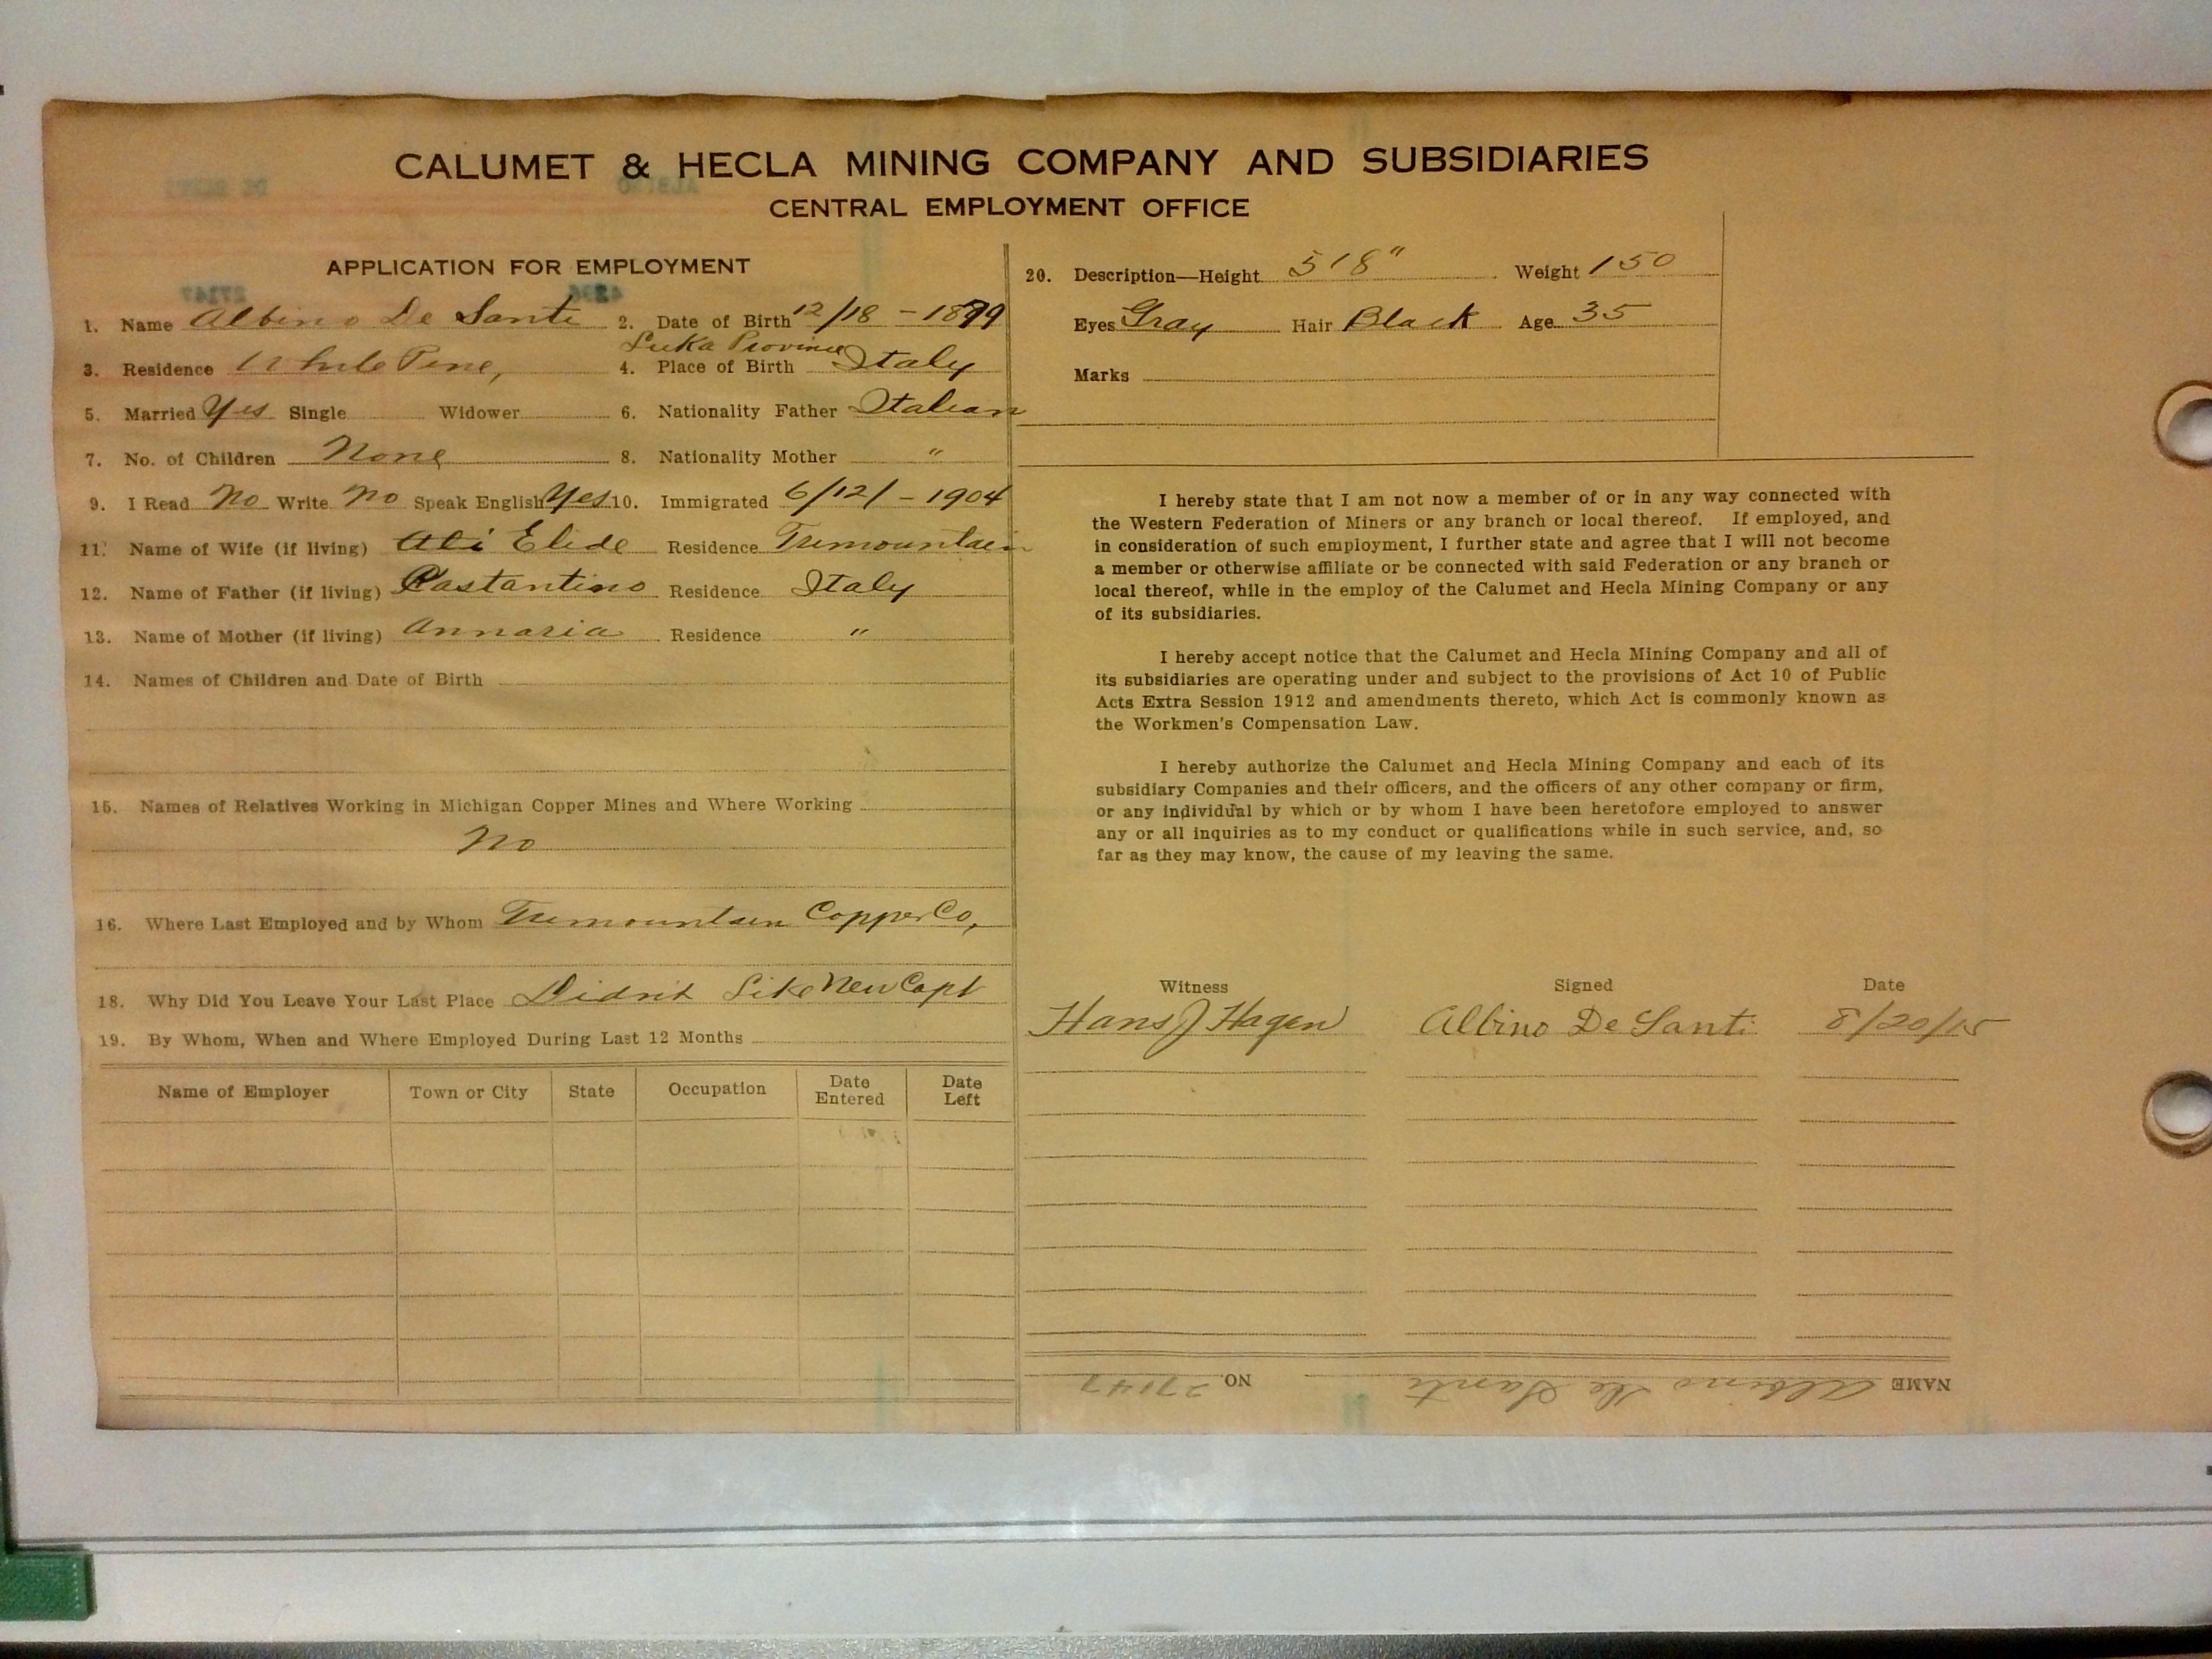 CALUMET & HECLA MINING COMPANY AND SUBSIDIARIES
CENTRAL EMPLOYMENT OFFICE
APPLICATION FOR EMPLOYMENT
1. Name Albino De Santi 2. Date of Birth 12/18 - 1879
Luka Province
3. Residence White Pine, 4. Place of Birth Italy
5. Married Yes Single Widower 6. Nationality Father Italian
7. No. of Children None 8. Nationality Mother "
9. I Read No Write No Speak English Yes 10. Immigrated 6/12/ - 1904
11. Name of Wife (if living) Ali Elide Residence Trimountain
12. Name of Father (if living) Castantino Residence Italy
13. Name of Mother (if living) Annaria Residence "
14. Names of Children and Date of Birth
15. Names of Relatives Working in Michigan Copper Mines and Where Working
No
16. Where Last Employed and by Whom Trimountain Copper Co,
18. Why Did You Leave Your Last Place Didn't Like New Capt
19. By Whom, When and Where Employed During Last 12 Months
Name of Employer Town or City State Occupation Date Entered Date Left
20. Description—Height 5'8" Weight 150
Eyes Gray Hair Black Age 35
Marks
I hereby state that I am not now a member of or in any way connected with
the Western Federation of Miners or any branch or local thereof. If employed, and
in consideration of such employment, I further state and agree that I will not become
a member or otherwise affiliate or be connected with said Federation or any branch or
local thereof, while in the employ of the Calumet and Hecla Mining Company or any
of its subsidiaries.
I hereby accept notice that the Calumet and Hecla Mining Company and all of
its subsidiaries are operating under and subject to the provisions of Act 10 of Public
Acts Extra Session 1912 and amendments thereto, which Act is commonly known as
the Workmen's Compensation Law.
I hereby authorize the Calumet and Hecla Mining Company and each of its
subsidiary Companies and their officers, and the officers of any other company or firm,
or any individual by which or by whom I have been heretofore employed to answer
any or all inquiries as to my conduct or qualifications while in such service, and, so
far as they may know, the cause of my leaving the same.
Witness Signed Date
Hans J Hagen Albino De Santi 8/20/15
NAME Albino De Santi NO. 27147